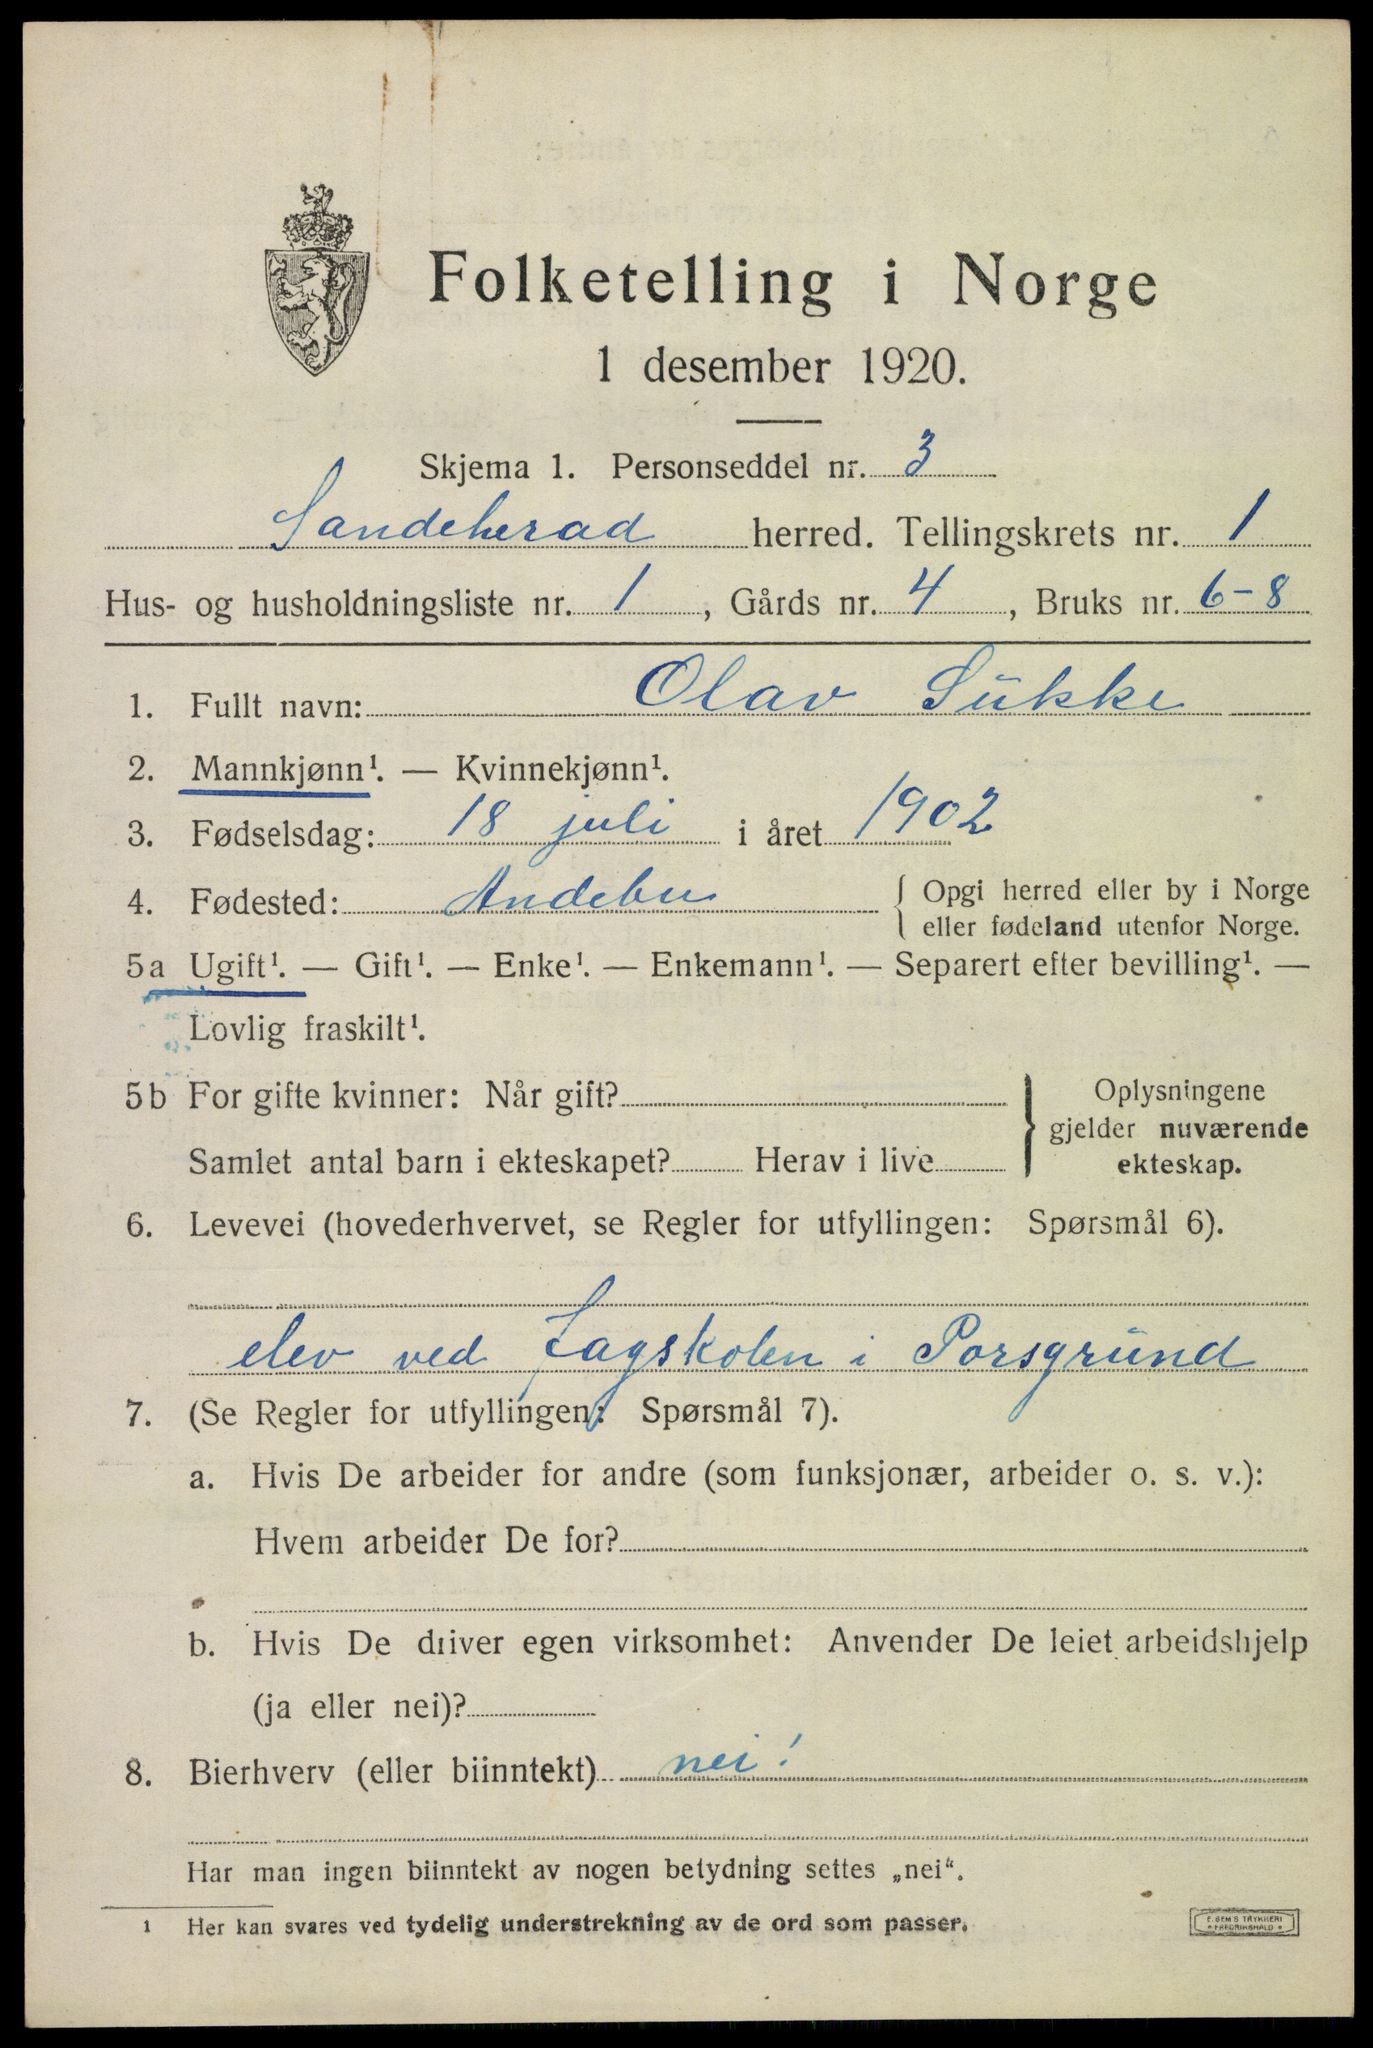 Folketelling i Norge
1 desember 1920.
Skjema 1. Personseddel nr. 3
Sandeherad herred. Tellingskrets nr. 1
Hus- og husholdningsliste nr. 1, Gårds nr. 4, Bruks nr. 6-8
1. Fullt navn: Olav Sükke
2. Mannkjønn¹. — Kvinnekjønn¹.
3. Fødselsdag: 18 juli i året 1902
4. Fødested: Andebu { Opgi herred eller by i Norge
eller fødeland utenfor Norge.
5a Ugift¹. — Gift¹. — Enke¹. — Enkemann¹. — Separert efter bevilling¹. —
Lovlig fraskilt¹.
5b For gifte kvinner: Når gift? } Oplysningene
gjelder nuværende
Samlet antal barn i ekteskapet? Herav i live ekteskap.
6. Levevei (hovederhvervet, se Regler for utfyllingen: Spørsmål 6).
elev ved fagskolen i Porsgründ
7. (Se Regler for utfyllingen: Spørsmål 7).
a. Hvis De arbeider for andre (som funksjonær, arbeider o. s. v.):
Hvem arbeider De for?
b. Hvis De driver egen virksomhet: Anvender De leiet arbeidshjelp
(ja eller nei)?
8. Bierhverv (eller biinntekt) nei!
Har man ingen biinntekt av nogen betydning settes „nei“.
1 Her kan svares ved tydelig understrekning av de ord som passer.
E. SEM'S TRYKKERI
* FREDRIKSHALD *